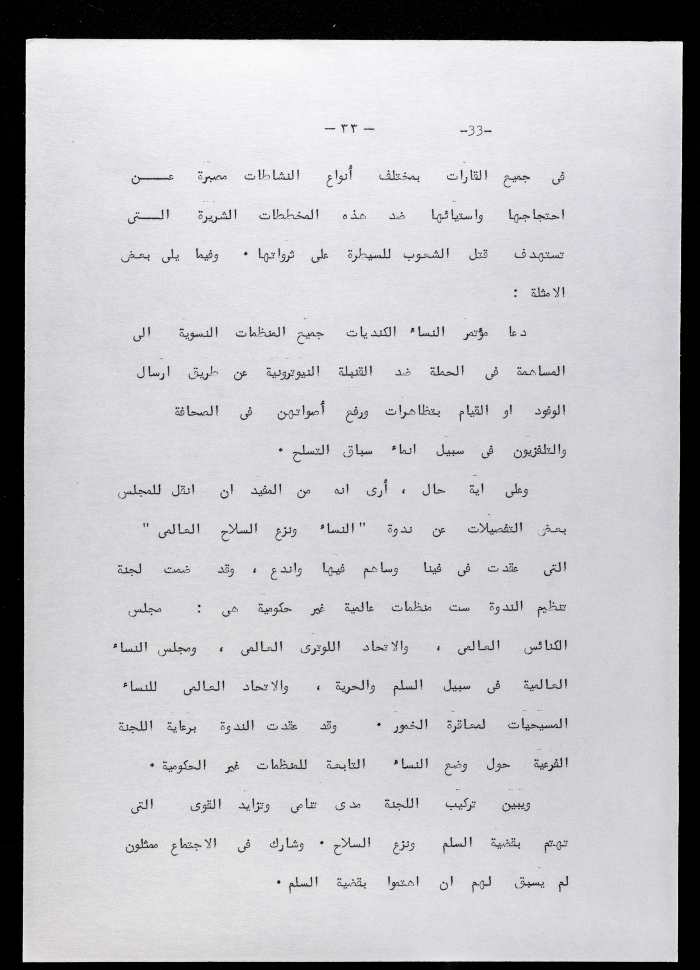 — ٣٣ — -33-
فى جميع القارات بمختلف أنواع النشاطات معبرة عـــن
احتجاجها واستيائها ضد هذه المخططات الشريرة الـــتى
تستهدف قتل الشعوب للسيطرة على ثرواتها • وفيما يلى بعض
الامثلة :
دعا مؤتمر النساء الكنديات جميع المنظمات النسوية الى
المساهمة فى الحملة ضد القنبلة النيوترونية عن طريق ارسال
الوفود او القيام بتظاهرات ورفع أصواتهن فى الصحافة
والتلفزيون فى سبيل انهاء سباق التسلح •
وعلى اية حال ، أرى انه من المفيد ان انقل للمجلس
بعض التفصيلات عن ندوة " النساء ونزع السلاح العالمى "
التى عقدت فى فينا وساهم فيها واندع ، وقد ضمت لجنة
تنظيم الندوة ست منظمات عالمية غير حكومية هى : مجلس
الكنائس العالمى ، والاتحاد اللوترى العالمى ، ومجلس النساء
العالمية فى سبيل السلم والحرية ، والاتحاد العالمى للنساء
المسيحيات لمعاقرة الخمور • وقد عقدت الندوة برعاية اللجنة
الفرعية حول وضع النساء التابعة للمنظمات غير الحكومية •
ويبين تركيب اللجنة مدى تنامى وتزايد القوى التى
تهتم بقضية السلم ونزع السلاح • وشارك فى الاجتماع ممثلون
لم يسبق لهم ان اهتموا بقضية السلم •